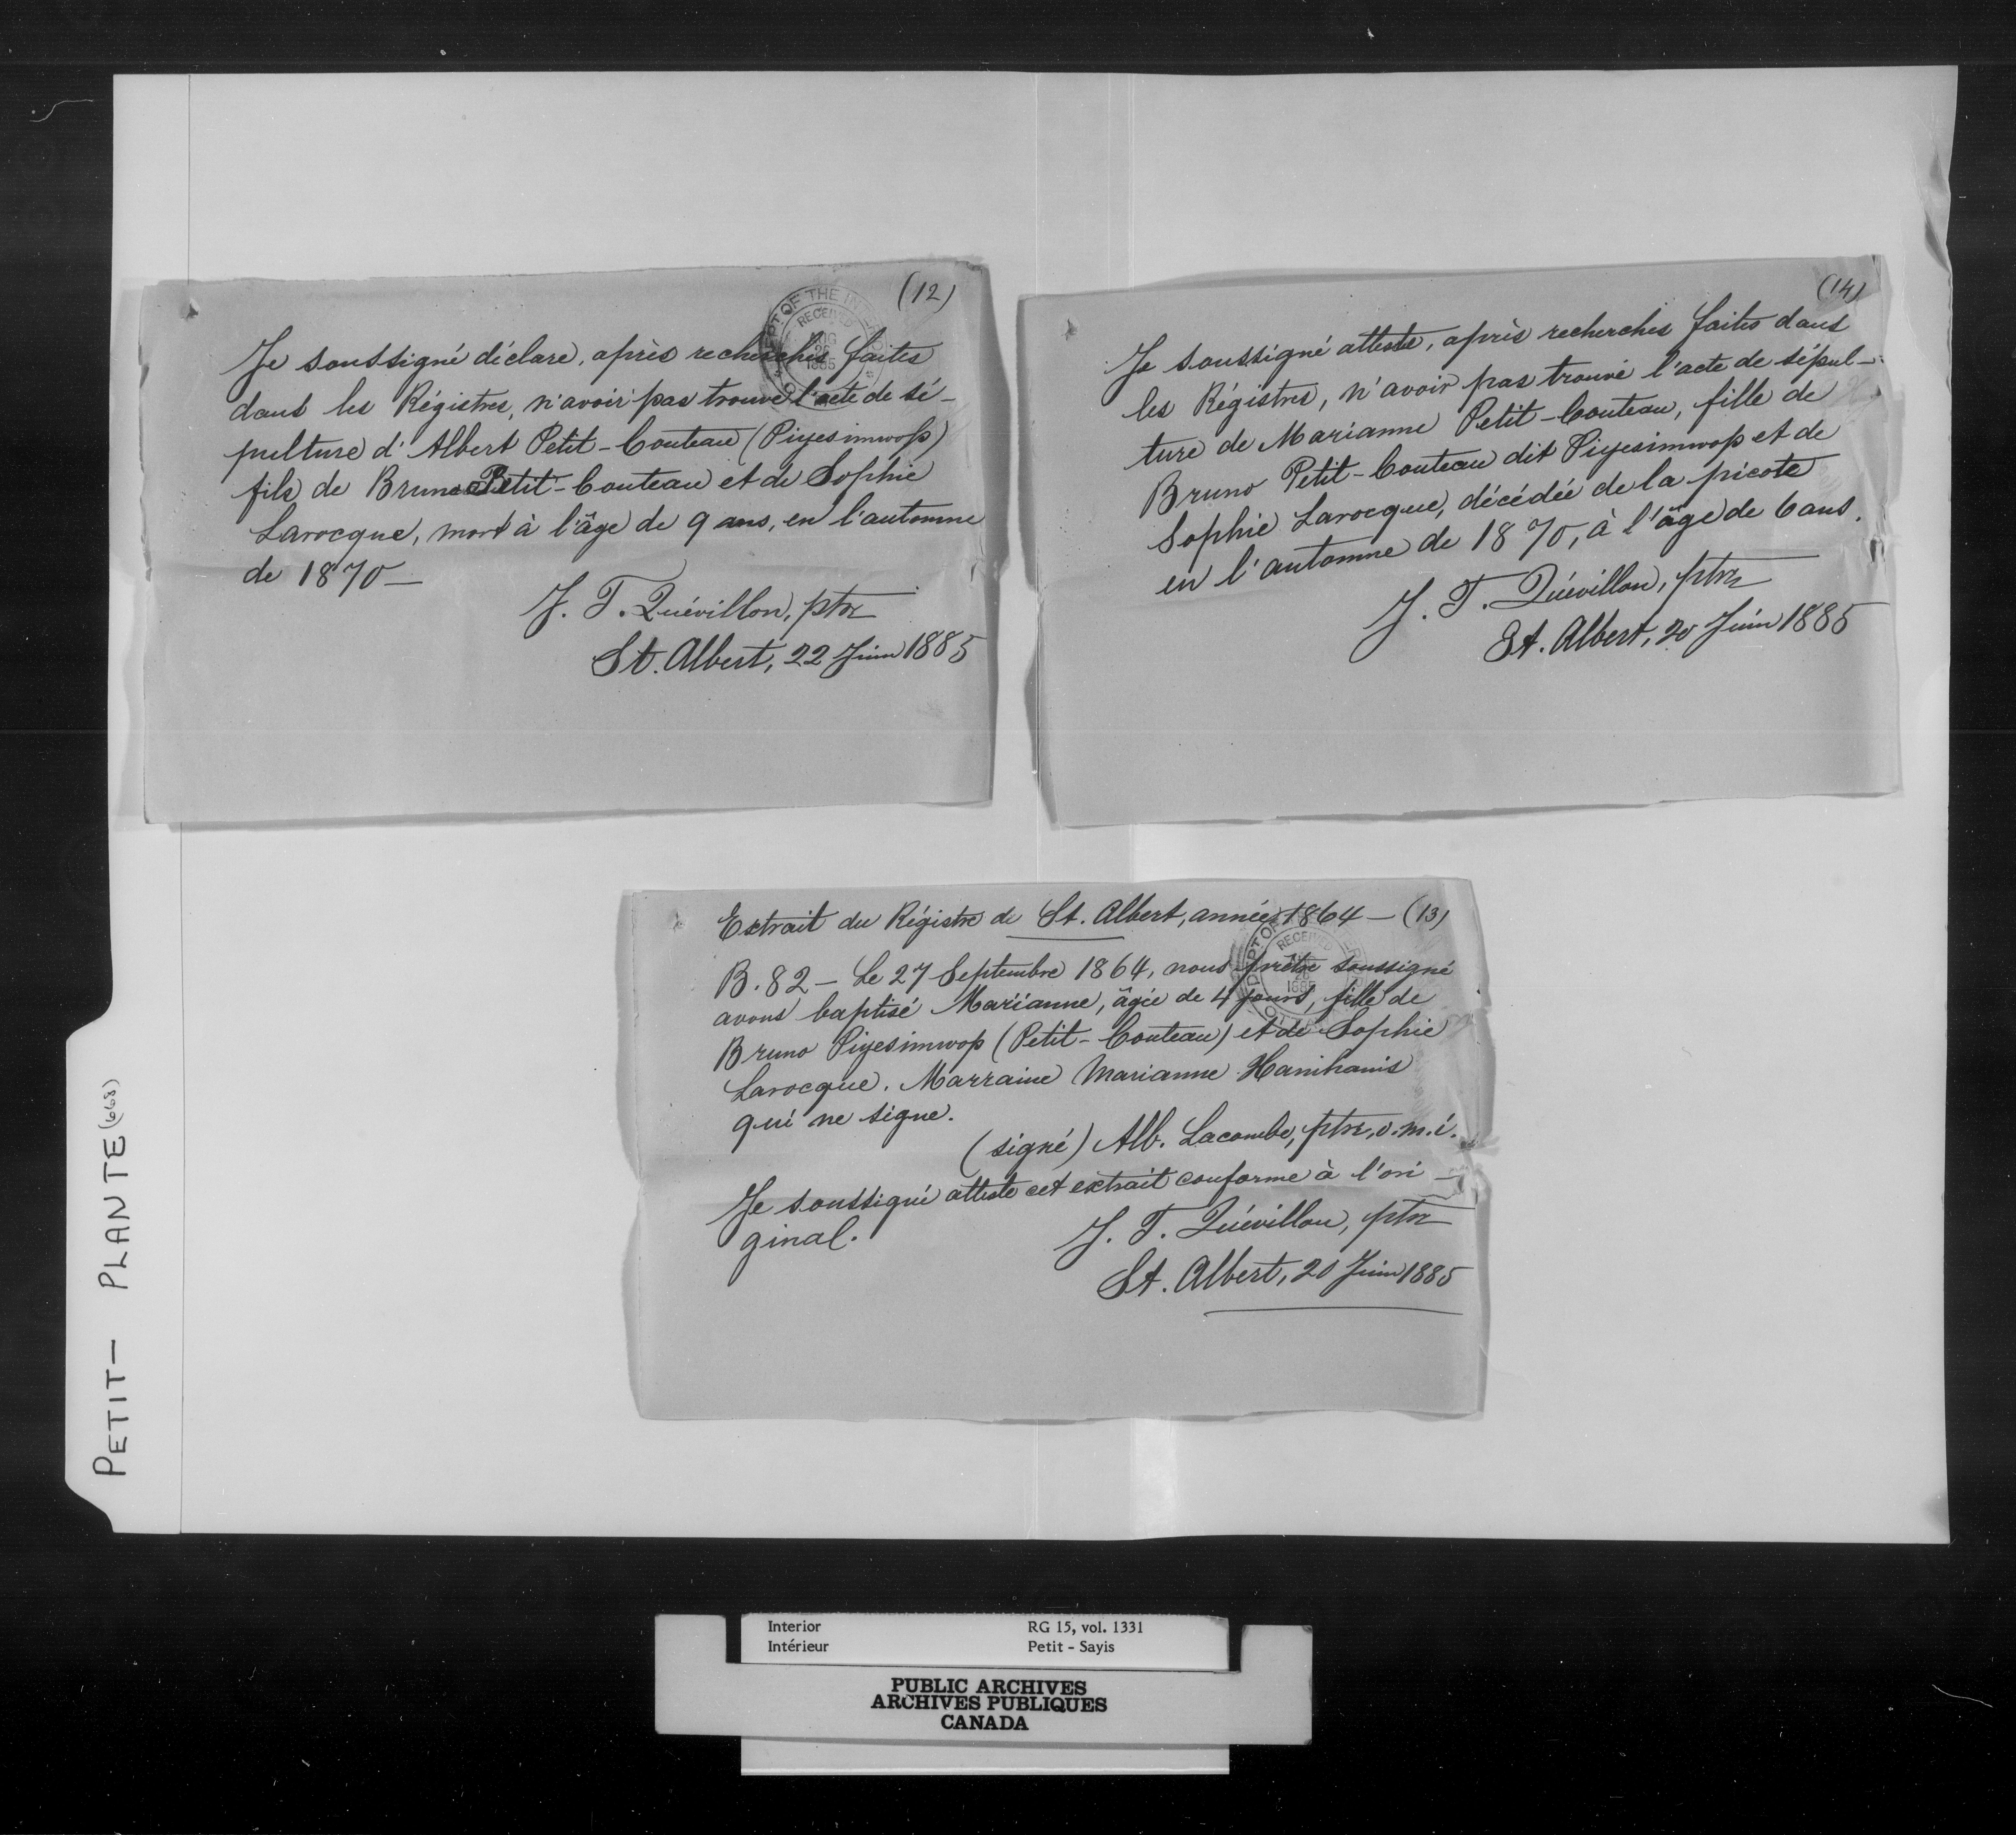 (12)
DEPT OF THE INTERIOR
RECEIVED
AUG
26
1885
Je soussigné déclare, après recherches faites
dans les Régistres, n'avoir pas trouvé l'acte de sé-
pulture d'Albert Petit-Couteau (Piyesimwop)
fils de Bruno Petit-Couteau et de Sophie
Larocque, mort à l'âge de 9 ans, en l'automne
de 1870—
J. T. Quévillon, ptre
St. Albert, 22 Juin 1885
(14)
Je soussigné atteste, après recherches faites dans
les Régistres, n'avoir pas trouvé l'acte de sépul-
ture de Marianne Petit-Couteau, fille de
Bruno Petit-Couteau dit Piyesimwop et de
Sophie Larocque, décédée de la picote
en l'automne de 1870, à l'âge de 6 ans.
J. T. Quévillon, ptre
St. Albert, 20 Juin 1885
Extrait du Régistre de St. Albert, année 1864 — (13)
RECEIVED
1885
B. 82 — Le 27 Septembre 1864, nous prêtre soussigné
avons baptisé Marianne, âgée de 4 jours, fille de
Bruno Piyesimwop (Petit-Couteau) et de Sophie
Larocque. Marraine Marianne Hanihanis
qui ne signe.
(signé) Alb. Lacombe, ptre, o.m.i.
Je soussigné atteste cet extrait conforme à l'ori-
ginal.
J. T. Quévillon, ptre
St. Albert, 20 Juin 1885
PETIT- PLANTE (668)
Interior RG 15, vol. 1331
Intérieur Petit - Sayis
PUBLIC ARCHIVES
ARCHIVES PUBLIQUES
CANADA